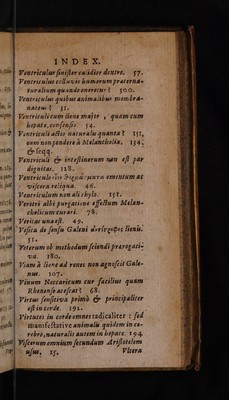 INDEX.
Ventriculus sinister calidior dextro. 57.
Ventriculus colluvie humorum praeternaturalium
quando oneretur? 500.
Ventriculus quibus animalibus membranaceus?
31.
Ventriculi cum liene major, quam cum
hepate, consensio. 54.
Ventriculi actio naturalis quanta? 151,
non pendere à Melancholia. 154.
& seqq.
Ventriculi & intestinorum non est par
dignitas. 128.
Ventriculo omentum ac
viscera reliqua. 46.
Ventriculum non ali chylo. 151.
Veratri albi purgatione affectum Melancholicum
curari. 78.
Veritas una est. 49.
Vesica de sensu Galeni lienis.
51.
Veterum ob methodum sciendi praerogativa.
180.
Viam à liene ad renes non agnoscit Galenus.
107.
Vinum Neccaricum cur facilius quam
Rhenense acescat? 68.
Virtus sensitiva primò & principaliter
est in corde. 191.
Virtutes in corde omnes radicaliter: sed
manifestative animalis quidem in cerebro,
naturalis autem in hepate. 194
Viscerum omnium secundum Aristotelem
usus, 25. Ultera